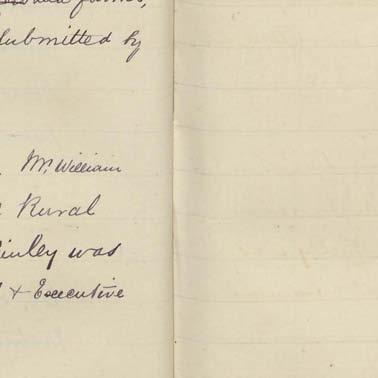 submitted by
Mr. William
Rural
was
& Executive